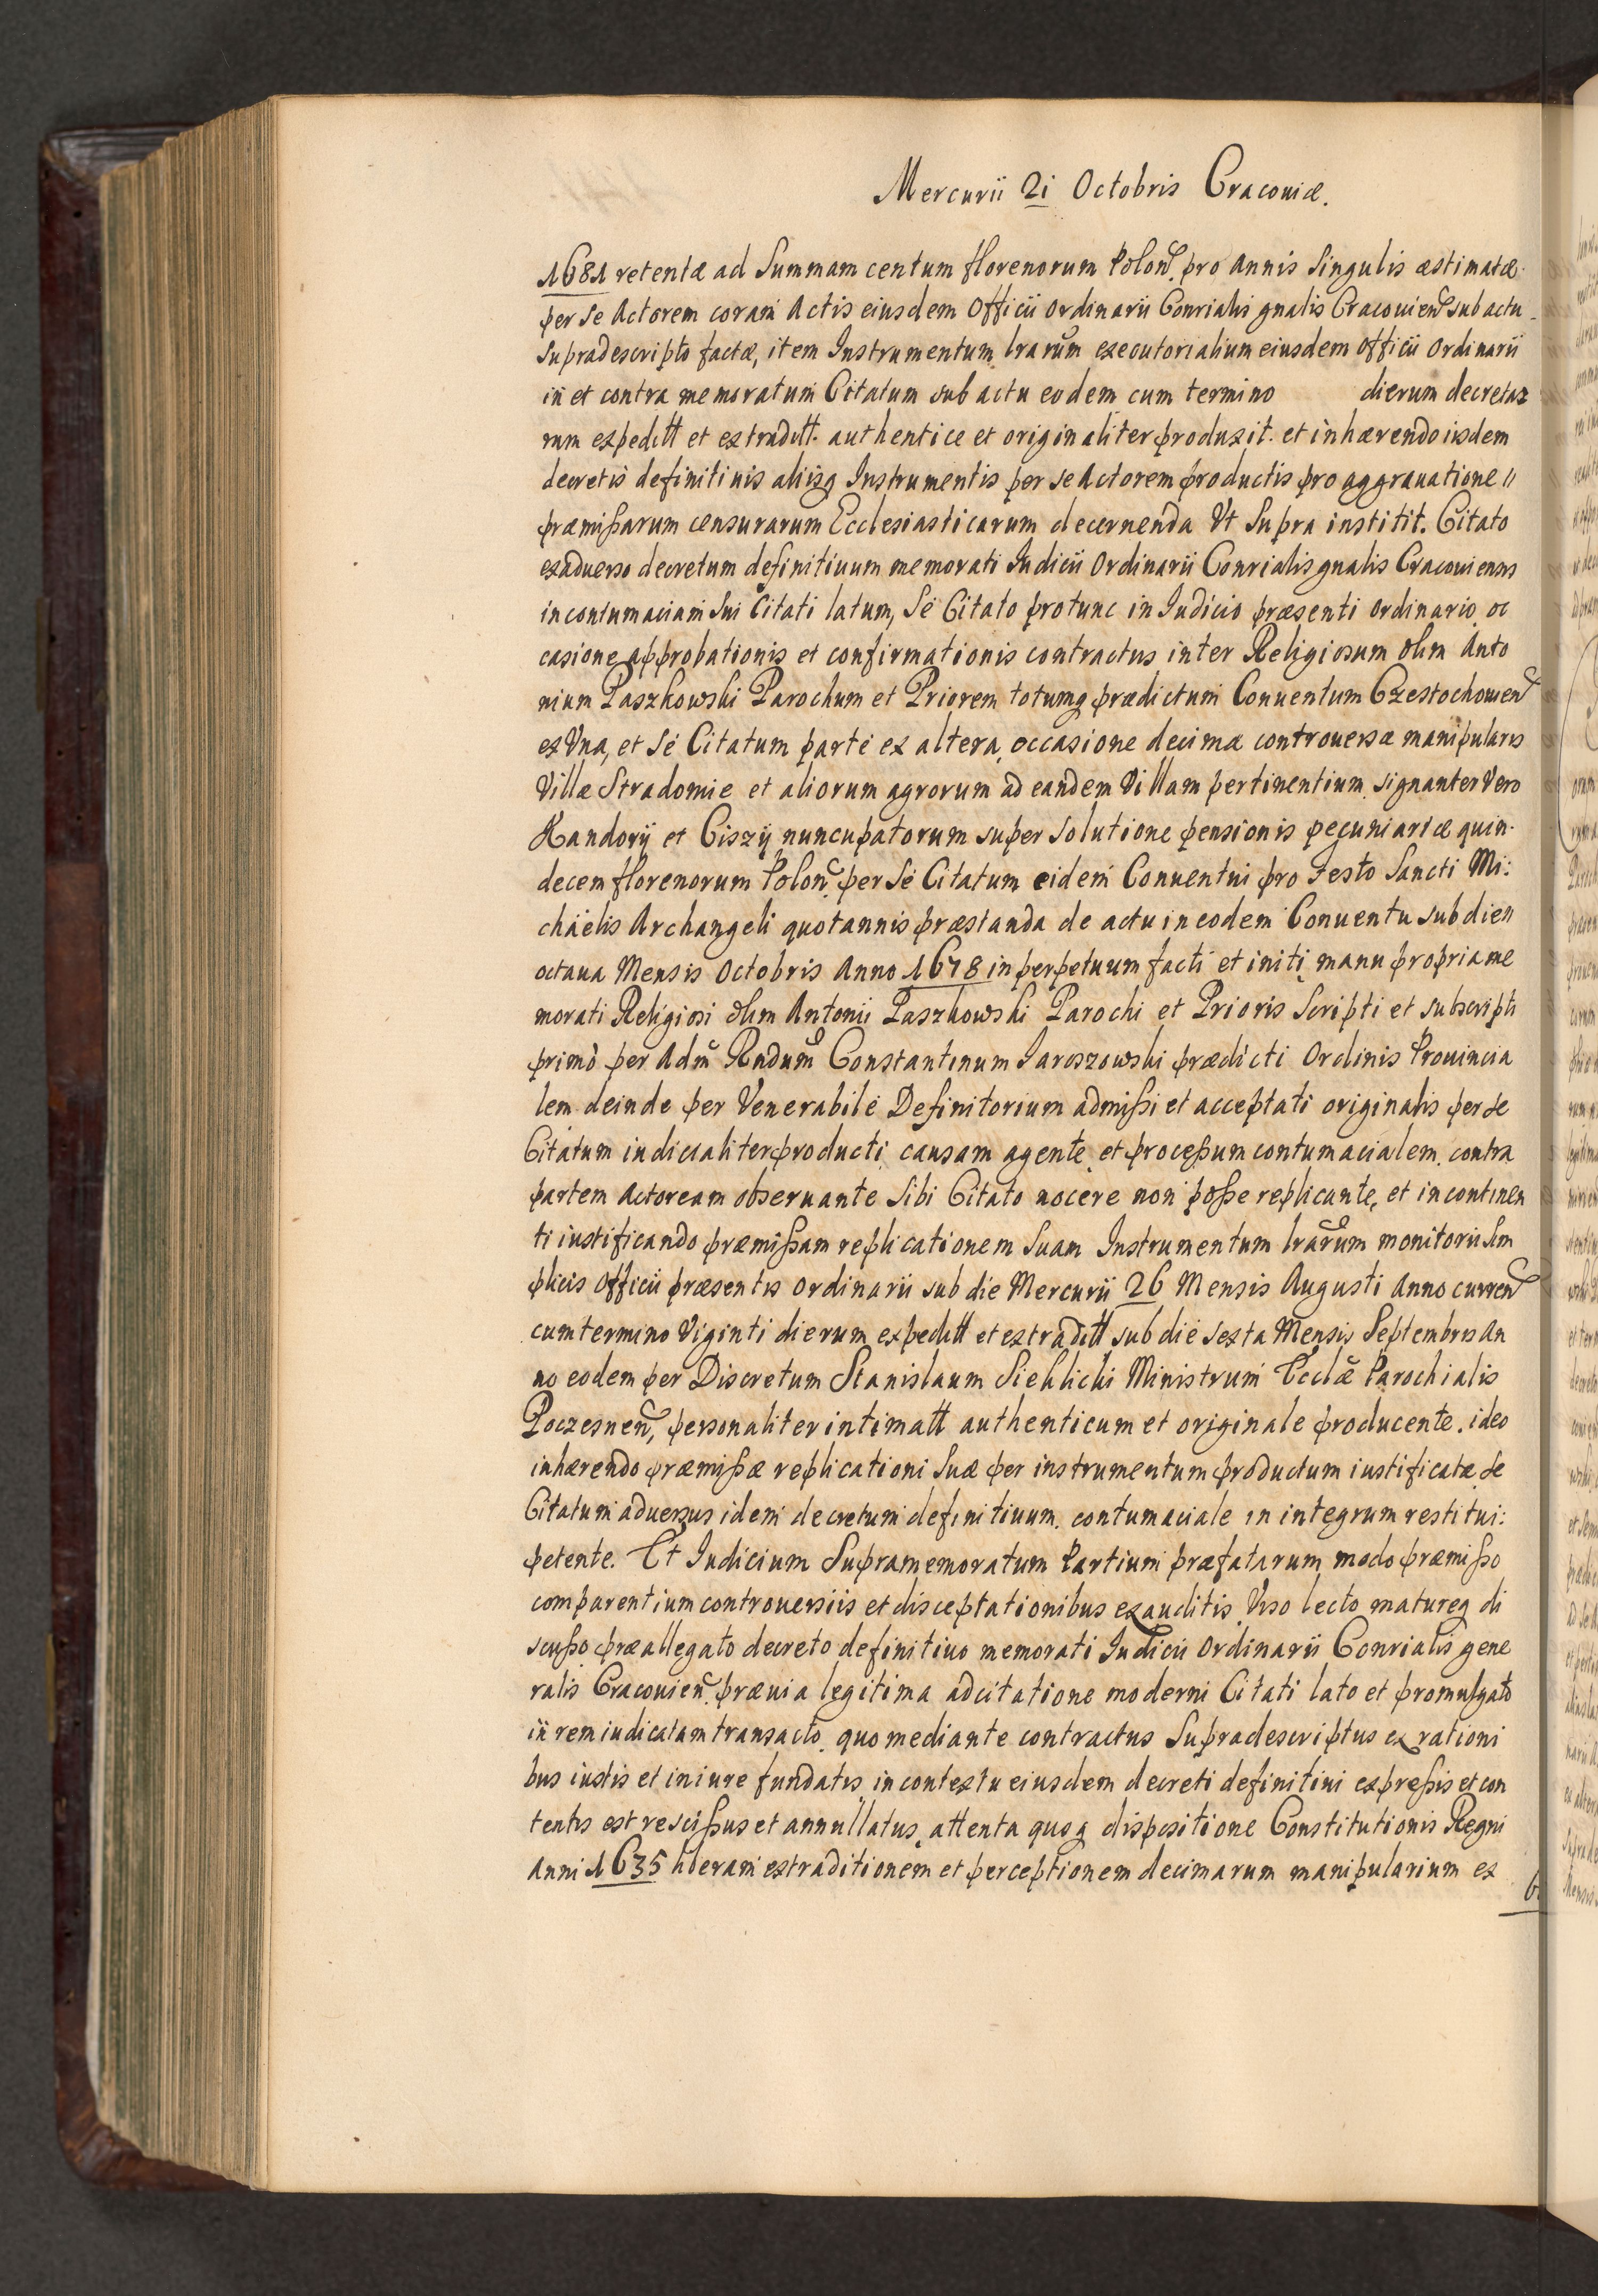 Mercurii 2i Octobris Cracouiæ.
1681 retentæ ad Summam centum florenorum Polon. pro Annis Singulis æstimatæ
per se Actorem coram Actis eiusdem Officii Ordinarii Conrialis gnalis Cracouien sub actu
Supradescripto factæ, item Instrumentum lrarum executorialium eiusdem officii Ordinarii
in et contra memoratum Citatum sub actu eodem cum termino dierum decreta
rum expeditt et extraditt. authentice et originaliter produxit. et inhærendo iisdem
decretis definitiuis aliisq Instrumentis per se Actorem productis pro aggrauatione
præmißarum censurarum Ecclesiasticarum decernenda Vt Supra institit. Citato
exaduerso decretum definitiuum memorati Iudicii Ordinarii Conrialis gnalis Cracouiensis
in contumaciam Sui Citati latum, Se Citato protunc in Iudicio præsenti Ordinario oc
casione approbationis et confirmationis contractus inter Religiosum olim Anto
nium Paszkowski Parochum et Priorem totumq prædictum Conuentum Czestochouien
ex Vna, et Se Citatum parte ex altera, occasione decimæ controuersæ manipularis
Villæ Stradomie et aliorum agrorum ad eandem Villam pertinentium, signanter Vero
Kandory et Ciszy nuncupatorum super Solutione pensionis pecuniariæ quin
decem florenorum Polon. per Se Citatum eidem Conuentui pro Festo Sancti Mi:
chäelis Archangeli quotannis præstanda de actu in eodem Conuentu sub dien
octaua Mensis Octobris Anno 1678 in perpetuum facti et initi, manu propria me
morati Religiosi olim Antonii Paszkowski Parochi et Prioris Scripti et subscripti
primò per Adm Rndum Constantinum Iaroszowski prædicti Ordinis Prouincia
lem deinde per Venerabile Definitorium admißi et acceptati originalis per se
Citatum iudicialiter producti, causam agente, et proceßum contumacialem contra
partem Actoream obseruante Sibi Citato nocere non poße replicante, et incontinen
ti iustificando præmißam replicationem Suam Instrumentum lrarum monitorii Sim
plicis Officii præsentis Ordinarii sub die Mercurii 26 Mensis Augusti Anno curren
cum termino Viginti dierum expeditt et extraditt sub die sexta Mensis Septembris An
no eodem per Discretum Stanislaum Sieklicki Ministrum Ecclæ Parochialis
Poczesnen, personaliter intimatt authenticum et originale producente. ideo
inhærendo præmißæ replicationi Suæ per instrumentum productum iustificatæ se
Citatum aduersus idem decretum definitiuum contumaciale in integrum restitui:
petente. Et Iudicium Supramemoratum Partium præfatarum modo præmißo
comparentium controuersiis et disceptationibus exauditis Viso lecto matureq di
scußo præallegato decreto definitiuo memorati Iudicii Ordinarii Conrialis gene
ralis Cracouien. præuia legitima adcitatione moderni Citati lato et promulgato
in rem iudicatam transacto, quo mediante contractus Supradescriptus ex rationi
bus iustis et in iure fundatis, in contextu eiusdem decreti definitiui expreßis et con
tentis est rescißus et annullatus, attenta quoq dispositione Constitutionis Regni
Anni 1635 liberam extraditionem et perceptionem decimarum manipularium ex